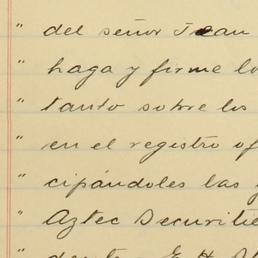 " del señor Juan
" haga y firme lo
" tanto sobre los
" en el registro of
" cipándoles las
" Aztec Securitie
"